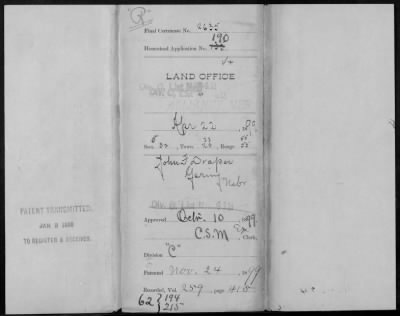 Final Certificate No. 2635
190
Homestead Application No.
LAND OFFICE
Apr 22, 189
Sec. Town. Range
John F Draper
Gering
Nebr
PATENT TRANSMITTED,
JAN 8
TO REGISTER & RECEIVER.
Approved Oct. 10, 1899
C.S.M. Ex, Clerk,
Division "C"
Patented Nov. 24, 1899
Recorded, Vol. 259, page 415
62 } 194
215